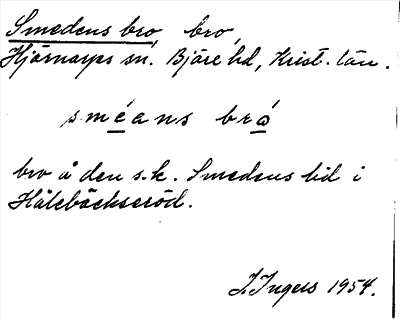 Smedens bro, bro,
Hjärnarps sn. Bjäre hd, Krist. län.
sméans brå
bro å den s.k. Smedens lid i
Hålebäckseröd.
I. Ingers 1954.